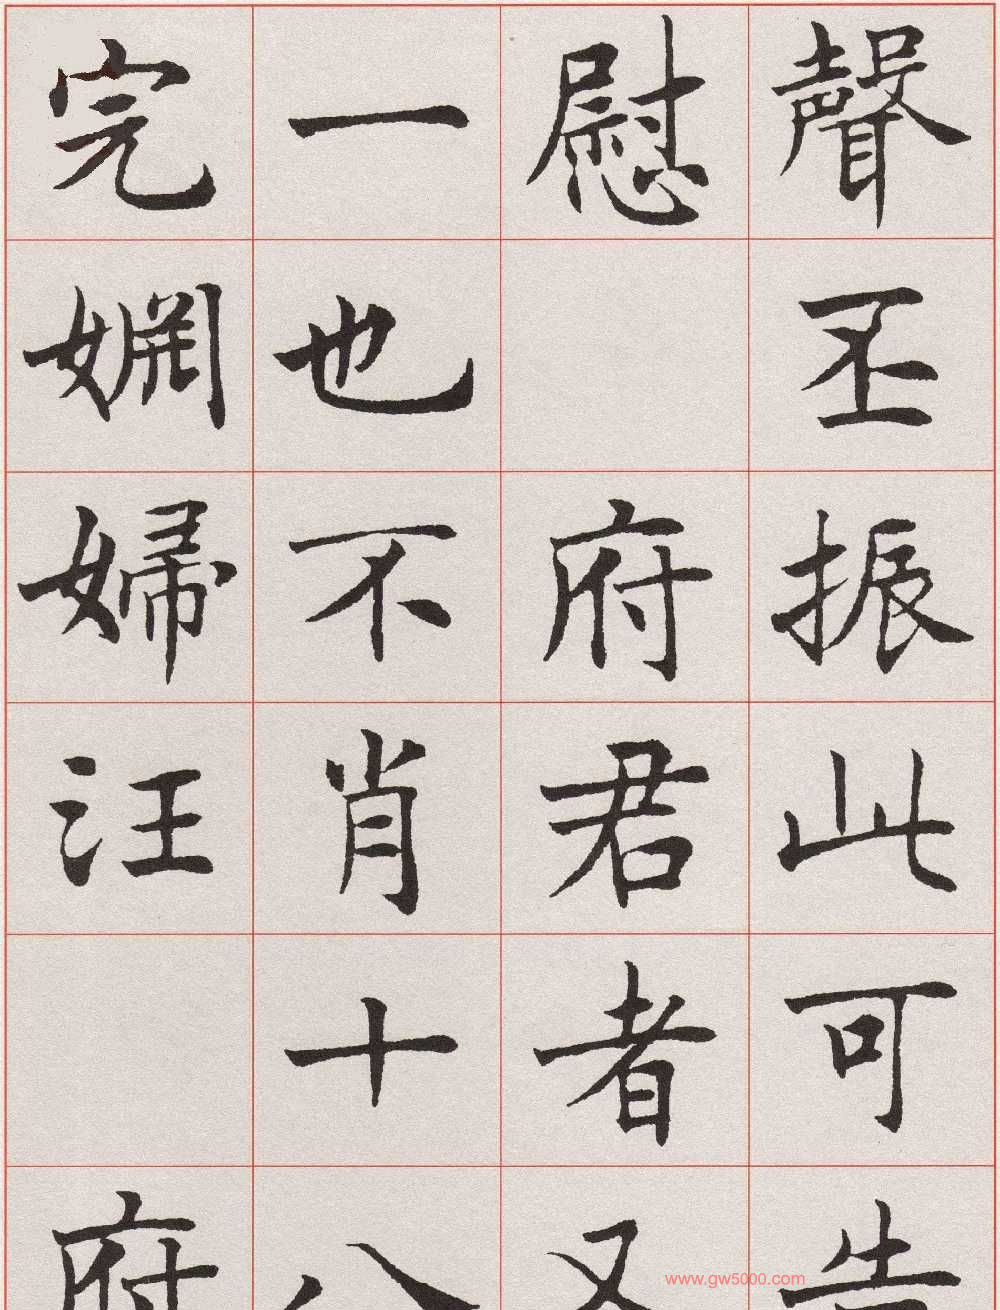 聲丕振此可告
慰 府君者又
一也不肖十八
完婣婦汪 府
www.gw5000.com